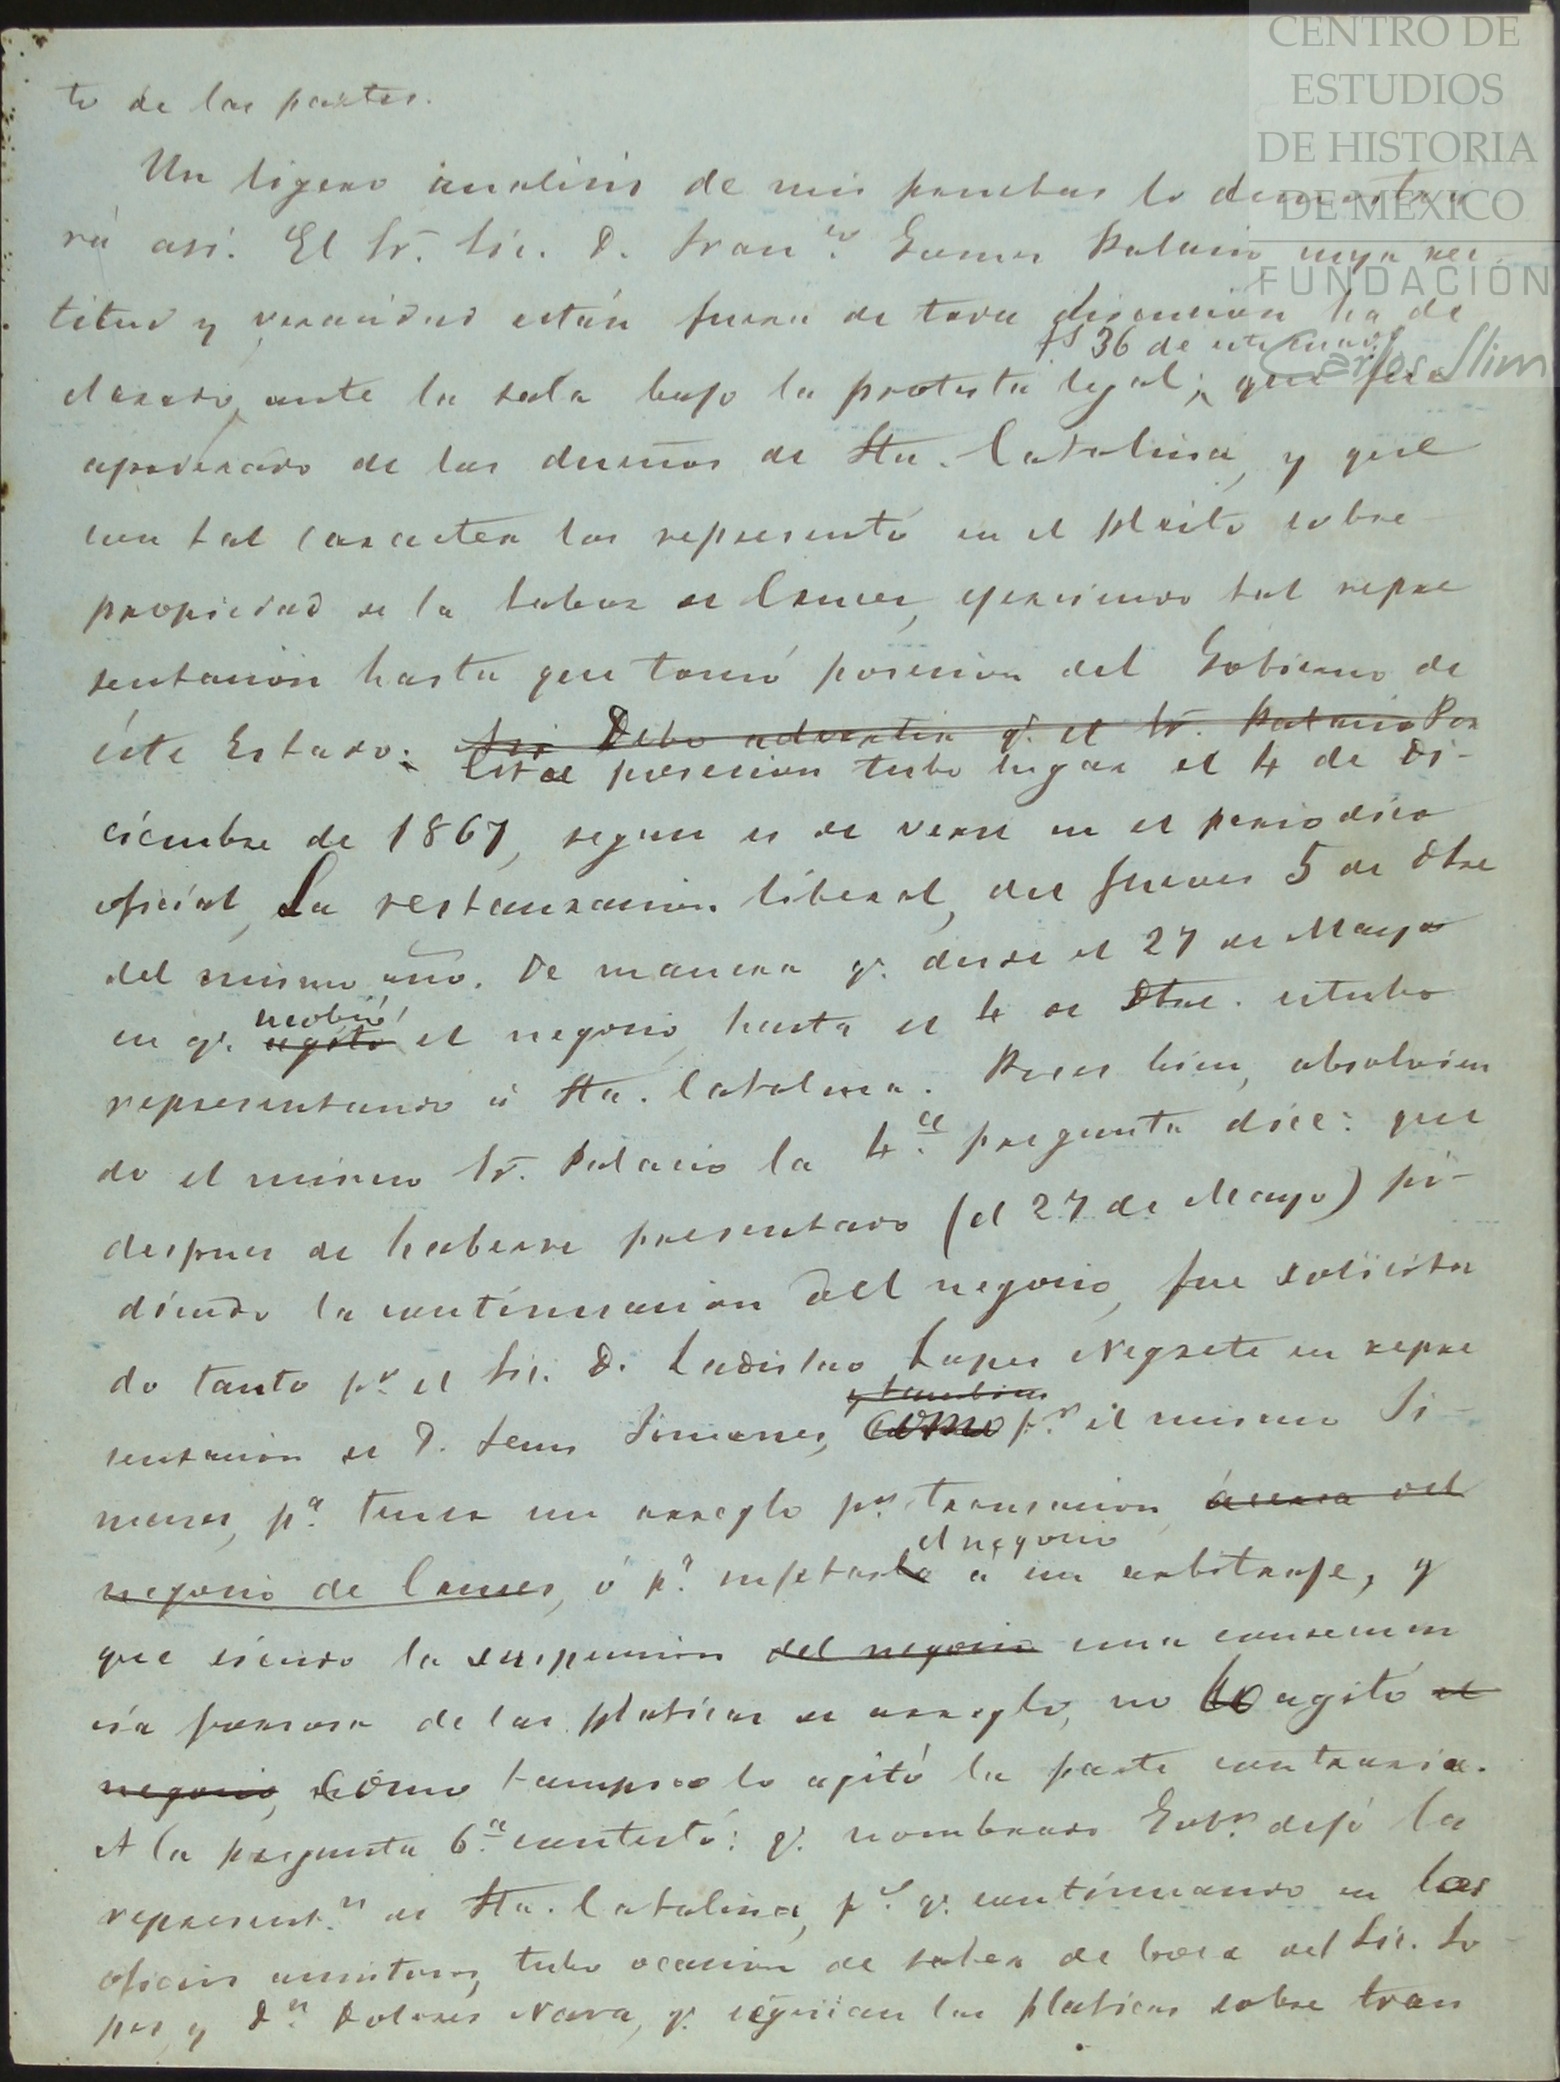 CENTRO DE
ESTUDIOS
DE HISTORIA
DE MÉXICO
FUNDACIÓN
Carlos Slim
to de las partes.
Un ligero analisis de mis pruebas lo demostra
rá asi. El Sr. Lic. D. Franco. Gomez Palacio cuya rec
titud y veracidad están fuera de toda discucion ha de
fs 36 de este cuado.
clarado, ante la sala bajo la protesta legal; que fue
apoderado de los dueños de Sta. Catalina, y que
con tal caracter los representó en el pleito sobre
propiedad de la labor de Cruces, ejerciendo tal repre
sentacion hasta que tomó posecion del Gobierno de
éste Estado. Asi Debo advertir q. el Sr. Palacio Por
Esta posecion tubo lugar el 4 de Di-
ciembre de 1867, segun es de verse en el periodico
oficial, La restauracion liberal, del jueves 5 de Dbre
del mismo año. De manera q. desde el 27 de Mayo
movió
en q. agitó el negocio, hasta el 4 de Dbre. estubo
representando á Sta. Catalina. Pues bien, absolvien
do el mismo Sr. Palacio la 4.a pregunta dice: que
despues de haberse presentado (el 27 de Mayo) pi-
diendo la continuacion del negocio, fue solicita
do tanto pr. el Lic. D. Ladislao Lopez Negrete en repre
y tambien
sentacion de D. Jesus Jimenes, como pr. el mismo Ji-
menes, pa. tener un arreglo pr. transacion, ácerca del
el negocio
negocio de Cruces, ó pa. sujetarlo á un arbitraje, y
que siendo la suspencion del negocio una consecuen
cia forzosa de las platicas de arreglo, no lo agitó el
negocio, como tampoco lo agitó la parte contraria.
A la pregunta 6.a contestó: q. nombrado Gobr. dejó la
represent.n de Sta. Catalina, pr. q. continuando en los
oficios amistosos, tubo ocacion de saber de boca del Lic. Lo
pes, y Dn. Dolores Nava, q. seguian las platicas sobre tran